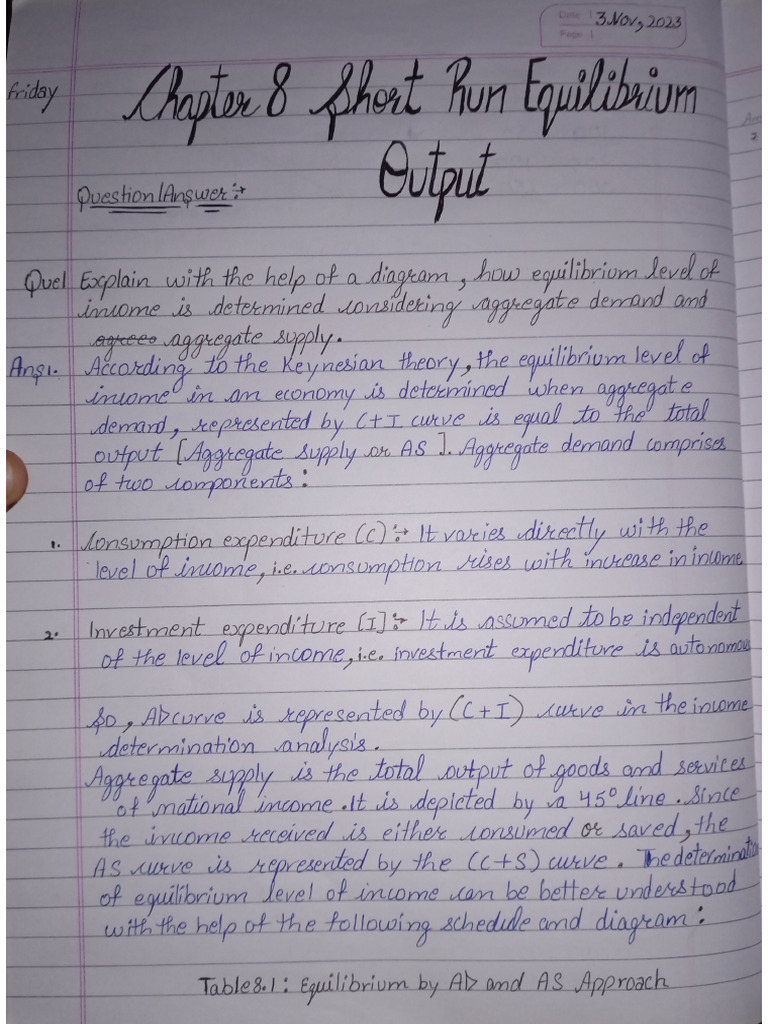 Date 3 Nov, 2023
Page
Friday
Chapter 8 Short Run Equilibrium
Output
Question/Answer:→
Que1 Explain with the help of a diagram, how equilibrium level of
income is determined considering aggregate demand and
agree aggregate supply.
Ans1. According to the Keynesian theory, the equilibrium level of
income in an economy is determined when aggregate
demand, represented by C+I curve is equal to the total
output [Aggregate supply or AS]. Aggregate demand comprises
of two components:
1. Consumption expenditure (C):→ It varies directly with the
level of income, i.e. consumption rises with increase in income
2. Investment expenditure [I]:→ It is assumed to be independent
of the level of income, i.e. investment expenditure is autonomous
So, AD curve is represented by (C+I) curve in the income
determination analysis.
Aggregate supply is the total output of goods and services
of national income. It is depicted by a 45° line. Since
the income received is either consumed or saved, the
AS curve is represented by the (C+S) curve. The determination
of equilibrium level of income can be better understood
with the help of the following schedule and diagram:
Table 8.1: Equilibrium by AD and AS Approach